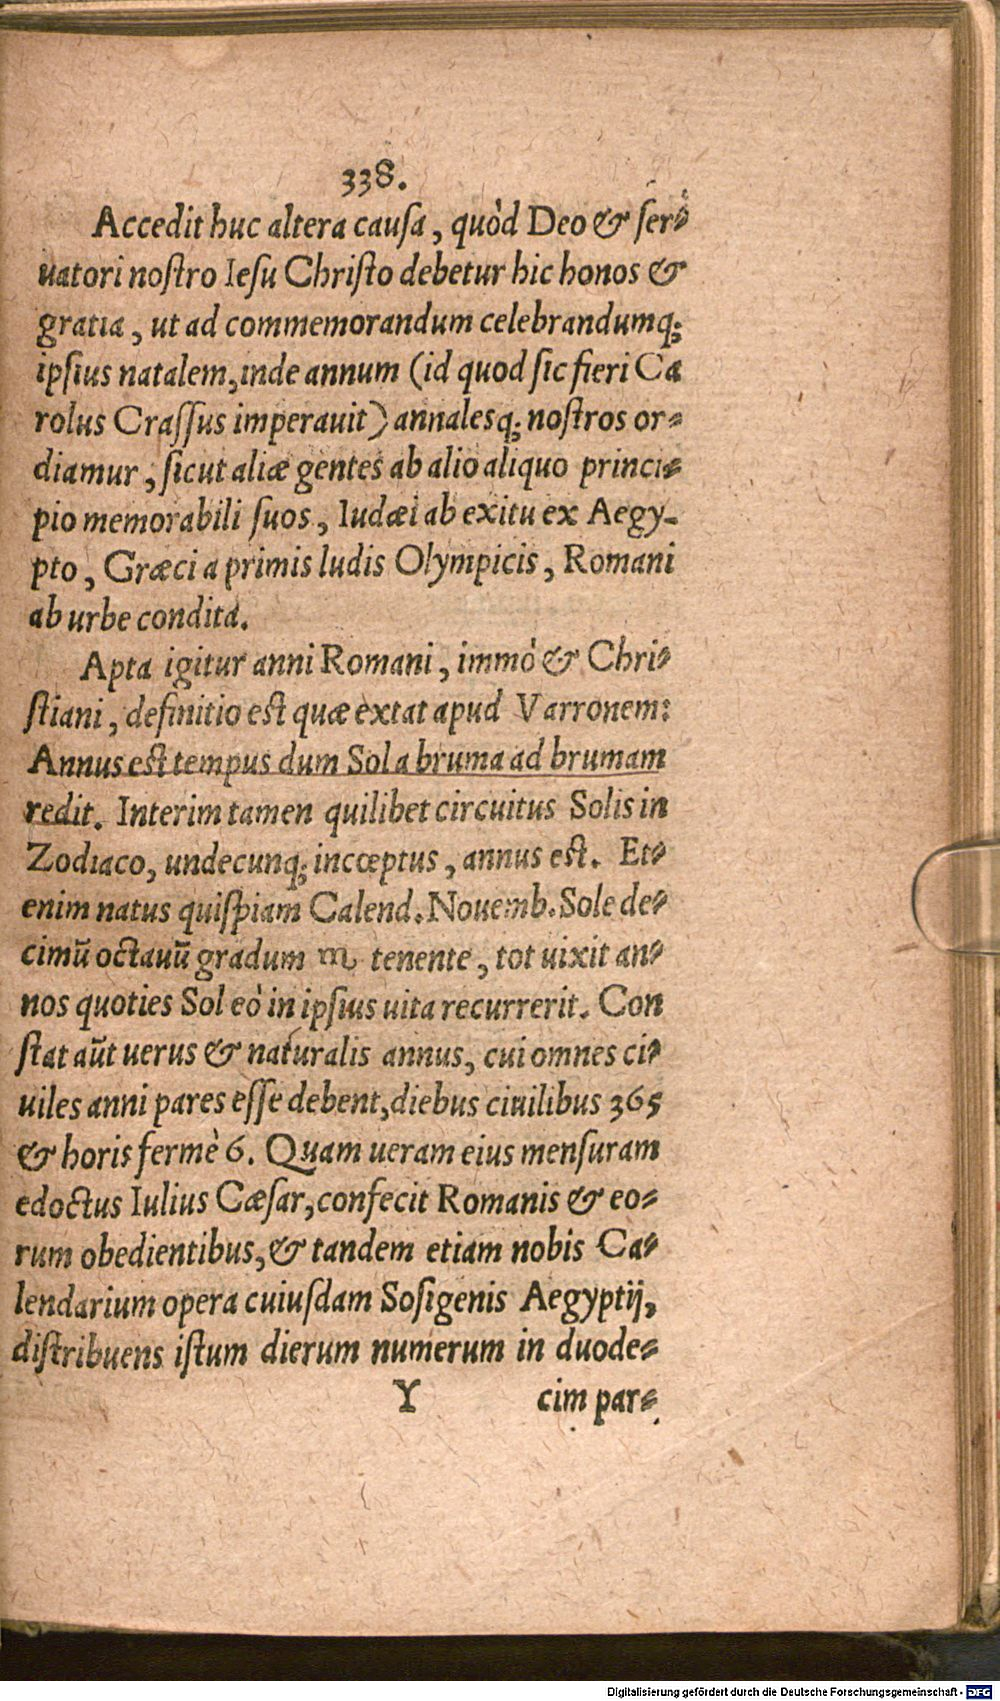 338.
Accedit huc altera causa, quòd Deo & ser⸗
uatori nostro Iesu Christo debetur hic honos &
gratia, ut ad commemorandum celebrandumq́;
ipsius natalem, inde annum (id quod sic fieri Ca
rolus Crassus imperauit) annalesq́; nostros or⸗
diamur, sicut aliæ gentes ab alio aliquo princi⸗
pio memorabili suos, Iudæi ab exitu ex Aegy-
pto, Græci a primis ludis Olympicis, Romani
ab urbe condita.
Apta igitur anni Romani, immò & Chri⸗
stiani, definitio est quæ extat apud Varronem:
Annus est tempus dum Sol a bruma ad brumam
redit. Interim tamen quilibet circuitus Solis in
Zodiaco, undecunq́; incœptus, annus est. Et⸗
enim natus quispiam Calend. Nouemb. Sole de⸗
cimū octauū gradum ♏ tenente, tot uixit an⸗
nos quoties Sol eò in ipsius uita recurrerit. Con
stat aūt uerus & naturalis annus, cui omnes ci⸗
uiles anni pares esse debent, diebus ciuilibus 365
& horis fermè 6. Quam ueram eius mensuram
edoctus Iulius Cæsar, confecit Romanis & eo⸗
rum obedientibus, & tandem etiam nobis Ca⸗
lendarium opera cuiusdam Sosigenis Aegyptij,
distribuens istum dierum numerum in duode⸗
Y cim par⸗
Digitalisierung gefördert durch die Deutsche Forschungsgemeinschaft - DFG